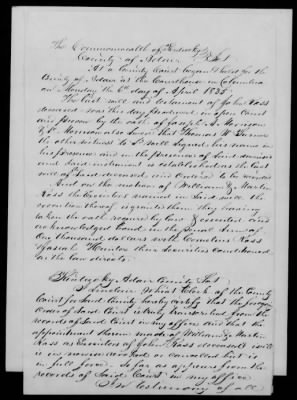 The Commonwealth of Kentucky
County of Adair Sct
At a County Court began & held for the
County of Adair at the Courthouse in Columbia
on Monday the 6th day of April 1835
The last will and testament of John Ross
deceased was this day produced in open Court
and proven by the oath of Joseph M. Morrison
& Sd Morrison also swore that Thomas W.
the other witness to Sd will signed his name in
his presence and in the presence of Said deceased
and Said instrument is established as the last
will of Said deceased and Ordered to be recorded
And on the motion of William & Martin
Ross the Executors named in Said will the
execution thereof is granted them they having
taken the oath required by law & executed and
acknowledged bond in the penal sum of
thousand dollars with Cornelius Ross
their Securities Conditioned
as the law directs
Kentucky Adair County Sct
I Clerk of the County
Court for Said County hereby certify that the foregoing
Order of Said Court is truly transcribed from the
records of Said Court in my office and that the
appointment therein made of William & Martin
Ross as Executors of John Ross deceased will
is in nowise revoked or cancelled but is
in full force so far as appears from the
records of Said Court in my office
In testimony of all